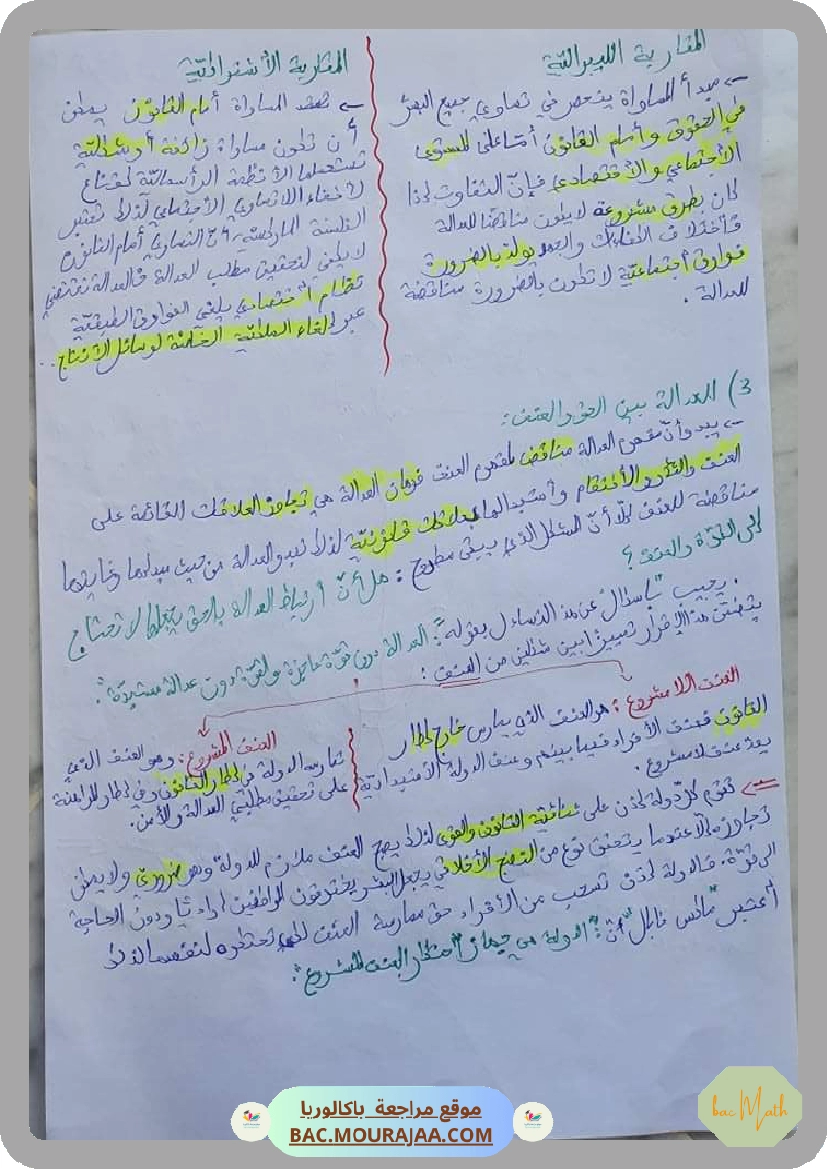 المقاربة الليبرالية
← مبدأ المساواة ينحصر في تساوي جميع البشر
في الحقوق وأمام القانون أما على المستوى
الاجتماعي والاقتصادي فإنّ التفاوت إذا
كان بطرق مشروعة لا يكون مناقضا للعدالة
فاختلاف الكفاءات والجهد يولد بالضرورة
فوارق اجتماعية لا تكون بالضرورة مناقضة
للعدالة.
المقاربة الاشتراكية
← تعتقد المساواة أمام القانون يمكن
أن تكون مساواة زائفة أو شكلية
تستعملها الأنظمة الرأسمالية كقناع
لإخفاء اللاتساوي الاجتماعي لذلك تعتبر
الفلسفة الماركسية أنّ التساوي أمام القانون
لا يكفي لتحقيق مطلب العدالة فالعدالة تقتضي
نظام اقتصادي يلغي الفوارق الطبقية
عبر إلغاء الملكية الخاصة لوسائل الإنتاج..
3) العدالة بين الحق والعنف:
← يبدو أنّ مفهوم العدالة مناقض لمفهوم العنف فرهان العدالة هي تجاوز العلاقات القائمة على
العنف والثأر والانتقام واستبدالها بعلاقات قانونية لذلك تبدو العدالة من حيث مبدئها وغايتها
مناقضة للعنف إلاّ أنّ المشكل الذي يبقى مطروح: هل أنّ ارتباط العدالة بالحق يجعلها لا تحتاج
إلى القوّة والعنف؟
. يجيب "باسكال" عن هذا التساؤل بقوله: "العدالة دون قوّة عاجزة والقوّة دون عدالة مستبدّة".
يتضمّن هذا الإقرار تمييزا بين شكلين من العنف:
العنف اللامشروع: هو العنف الذي يمارس خارج إطار
القانون فعنف الأفراد فيما بينهم وعنف الدولة الاستبدادية
يعدّ عنف لا مشروع.
العنف المشروع: وهو العنف الذي
تمارسه الدولة في إطار القانون وفي إطار المراهنة
على تحقيق مطلبي العدالة والأمن.
⇐ تقوم كل دولة إذن على ثنائية القانون والقوّة لذلك يصبح العنف ملازم للدولة وهو ضروري ولا يمكن
تجاوزه إلاّ عندما يتحقق نوع من النضج الأخلاقي يجعل البشر يحترمون القوانين إراديّا ودون الحاجة
إلى قوّة. فالدولة إذن تسحب من الأفراد حق ممارسة العنف لكي تحتكره لنفسها لذلك
اعتبر "ماكس فايبر" أنّ: "الدولة هي جهاز احتكار العنف المشروع".
bac Math
موقع مراجعة باكالوريا
BAC.MOURAJAA.COM